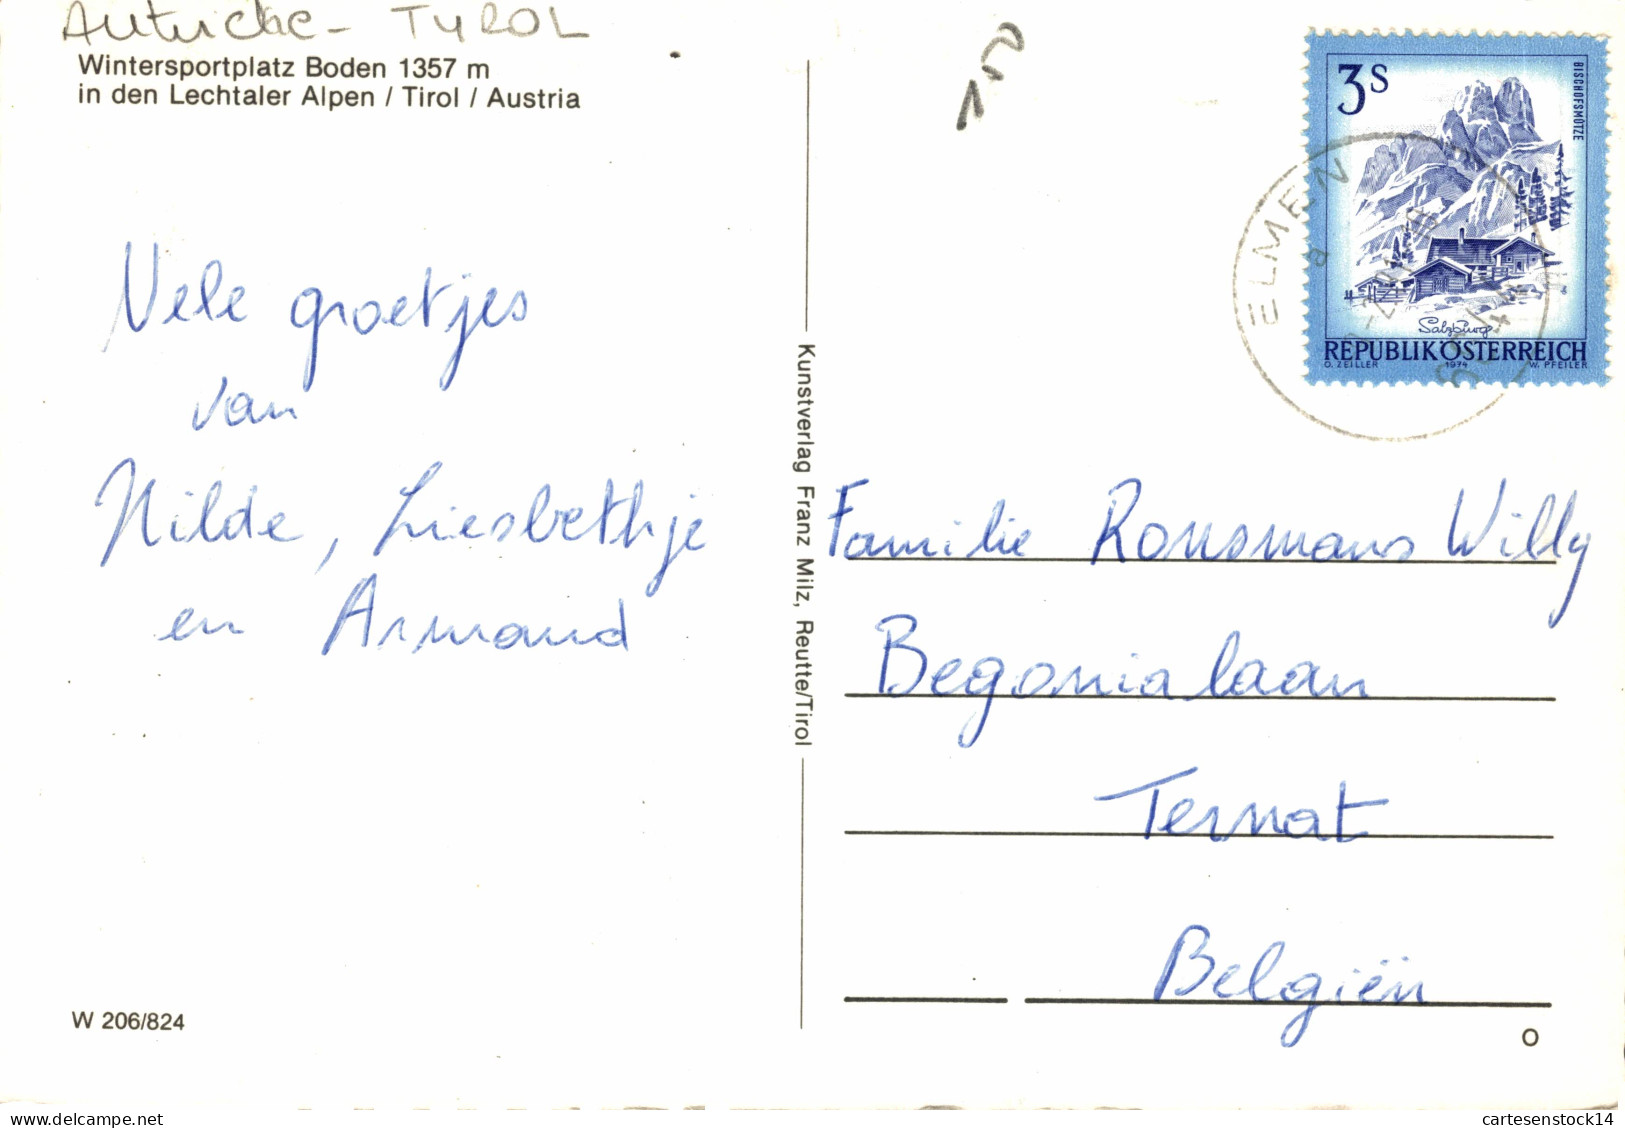 Autriche - TYROL
Wintersportplatz Boden 1357 m
in den Lechtaler Alpen / Tirol / Austria
Vele groetjes
van
Hilde, Liesbethje
en Armand
W 206/824
Kunstverlag Franz Milz, Reutte/Tirol
3S
BISCHOFSMÜTZE
Salzburg
REPUBLIK ÖSTERREICH
O. ZEILLER 1974 W. PFEILER
ELMEN
Familie Ronsmans Willy
Begonialaan
Ternat
Belgiën
O
www.delcampe.net
cartesenstock14